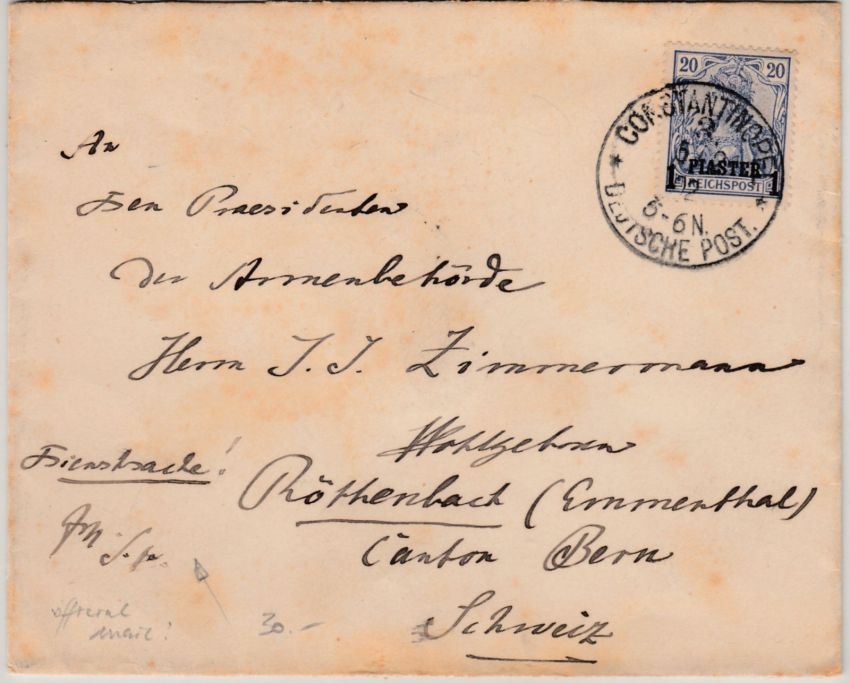 20 20
CONSTANTINOPEL
1 PIASTER 1
REICHSPOST
5-6N.
DEUTSCHE POST.
An
Den Praesidenten
Der Armenbehörde
Herrn J. J. Zimmermann
Wohlgeboren
Dienstsache!
Röthenbach (Emmenthal)
Canton Bern
official
mail!
30.-
Schweiz